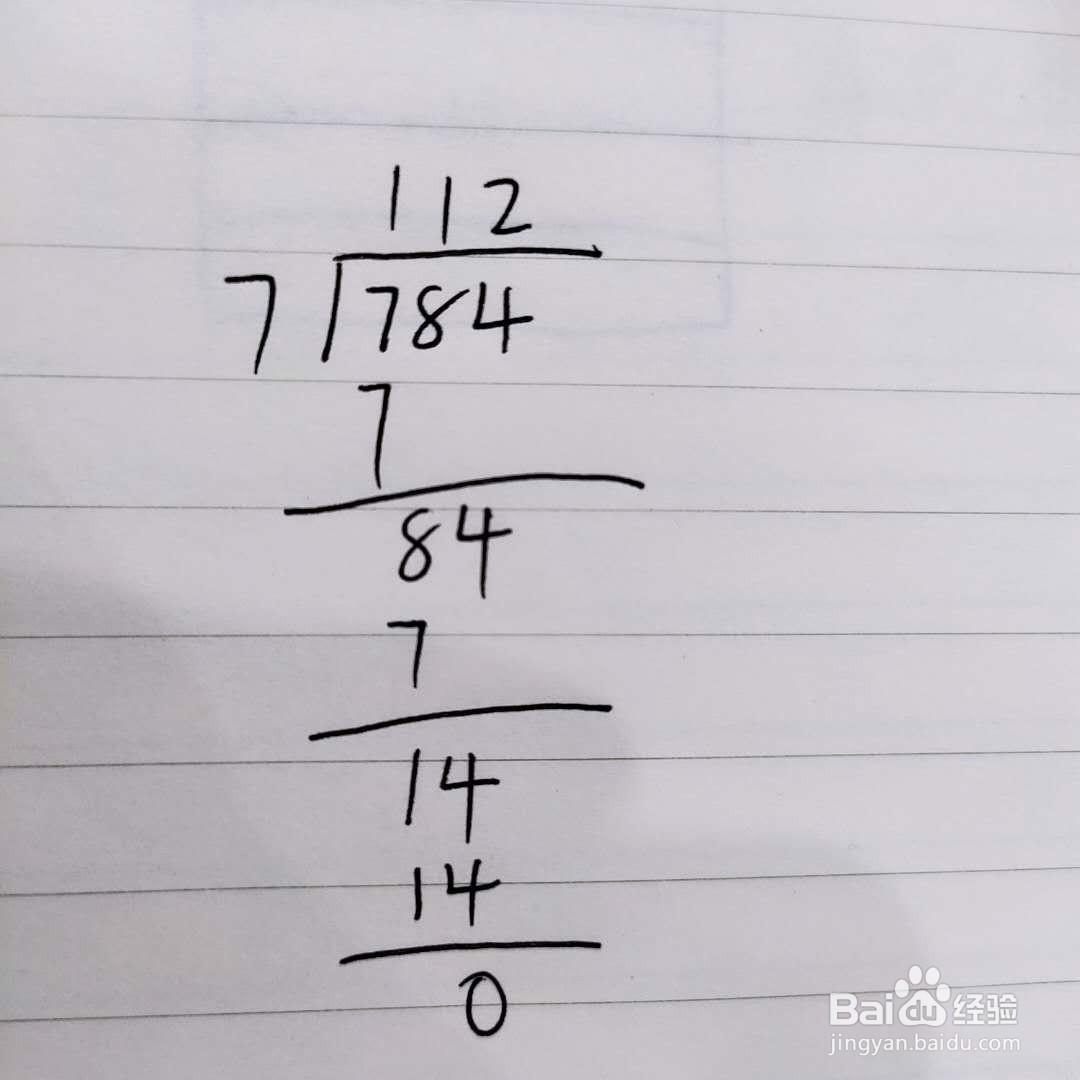 112
7 784
7
84
7
14
14
0
Baidu 经验
jingyan.baidu.com